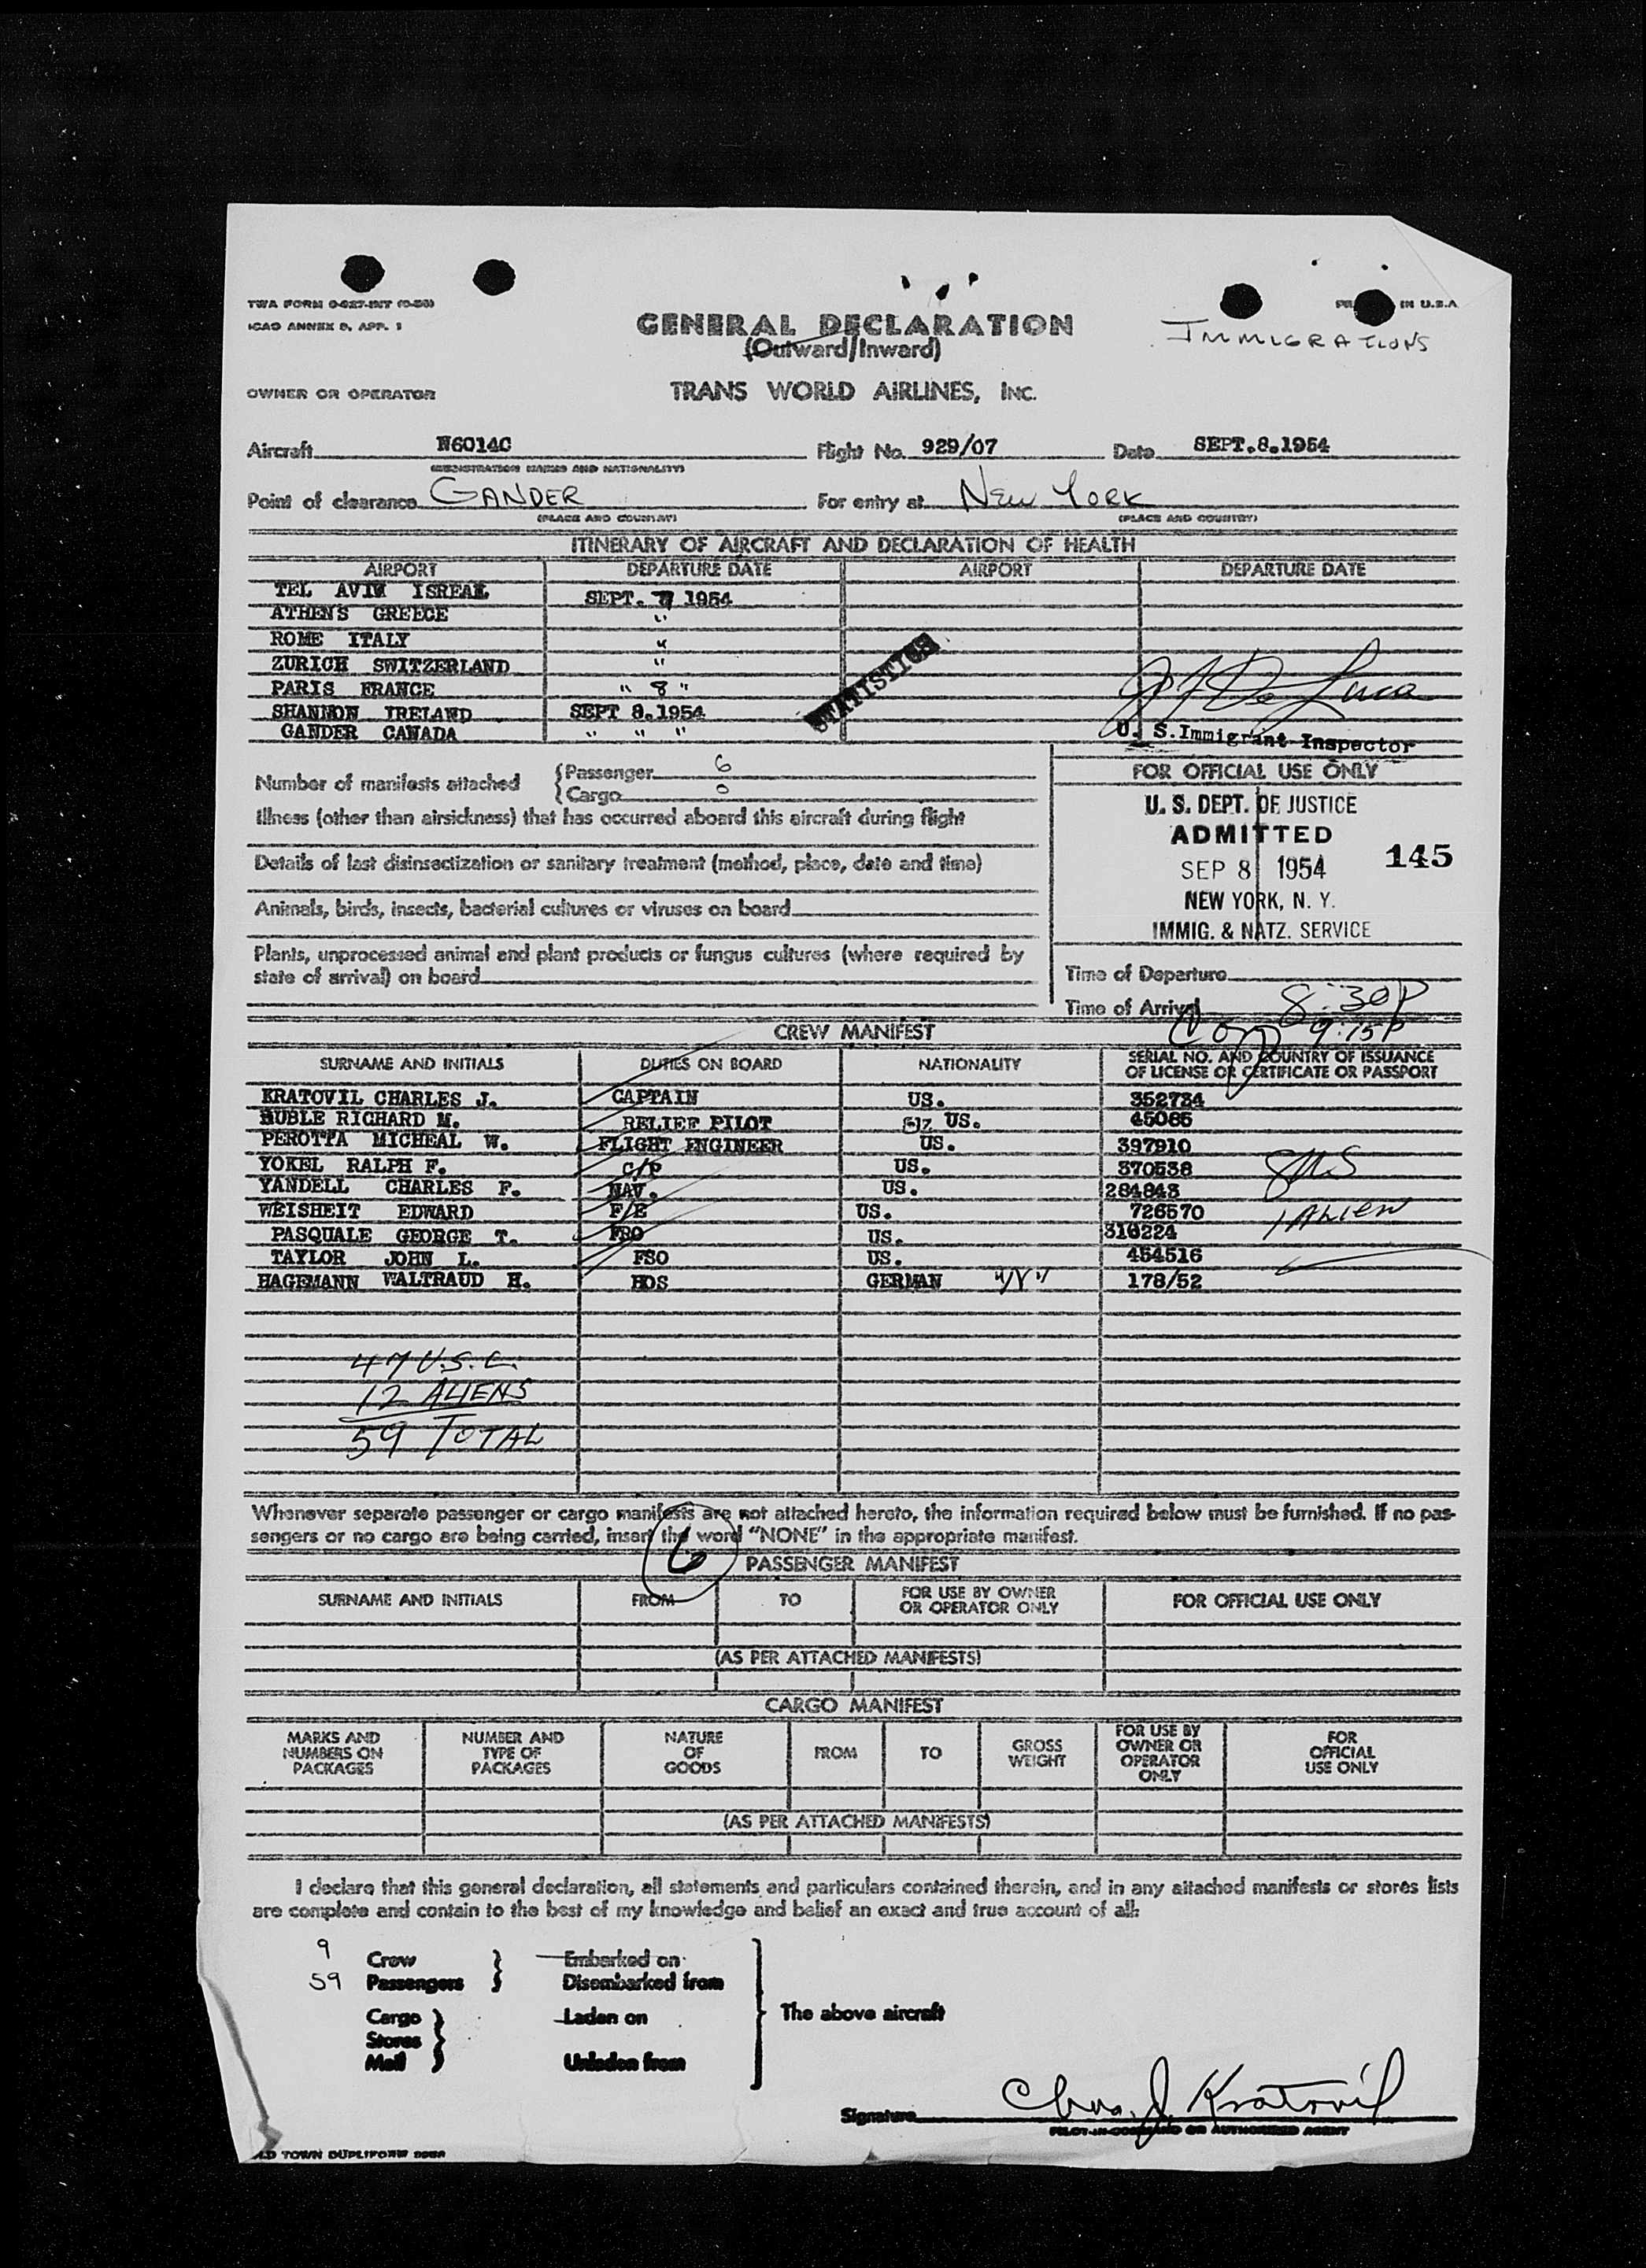 TWA FORM
ICAO ANNEX 9, APP. 1
IN U.S.A
IMMIGRATIONS
GENERAL DECLARATION
(Outward/Inward)
OWNER OR OPERATOR TRANS WORLD AIRLINES, INC.
Aircraft N6014C Flight No. 929/07 Date SEPT.8.1954
(REGISTRATION MARKS AND NATIONALITY)
Point of clearance GANDER For entry at NEW YORK
(PLACE AND COUNTRY) (PLACE AND COUNTRY)
ITINERARY OF AIRCRAFT AND DECLARATION OF HEALTH
AIRPORT DEPARTURE DATE AIRPORT DEPARTURE DATE
TEL AVIV ISREAL SEPT. 7 1954
ATHENS GREECE "
ROME ITALY "
ZURICH SWITZERLAND "
PARIS FRANCE " 8 "
SHANNON IRELAND SEPT 8.1954
GANDER CANADA " " "
STATISTICS
De Luca
U. S. Immigrant Inspector
Number of manifests attached
Passenger 6
Cargo 0
Illness (other than airsickness) that has occurred aboard this aircraft during flight
Details of last disinsectization or sanitary treatment (method, place, date and time)
Animals, birds, insects, bacterial cultures or viruses on board
Plants, unprocessed animal and plant products or fungus cultures (where required by
state of arrival) on board
FOR OFFICIAL USE ONLY
U. S. DEPT. OF JUSTICE
ADMITTED
SEP 8 1954 145
NEW YORK, N. Y.
IMMIG. & NATZ. SERVICE
Time of Departure
Time of Arrival 8:30P
9:15P
CREW MANIFEST
SURNAME AND INITIALS DUTIES ON BOARD NATIONALITY SERIAL NO. AND COUNTRY OF ISSUANCE
OF LICENSE OR CERTIFICATE OR PASSPORT
KRATOVIL CHARLES J. CAPTAIN US. 352734
BUBLE RICHARD M. RELIEF PILOT US. 45065
PEROTTA MICHEAL W. FLIGHT ENGINEER US. 397910
YOKEL RALPH F. C/P US. 370538
YANDELL CHARLES F. NAV. US. 284843
WEISHEIT EDWARD F/E US. 726570
PASQUALE GEORGE T. FRO US. 310224
TAYLOR JOHN L. FSO US. 454516
HAGEMANN WALTRAUD H. HOS GERMAN 178/52
8 US
1 ALIEN
47 U.S.C.
12 ALIENS
59 TOTAL
Whenever separate passenger or cargo manifests are not attached hereto, the information required below must be furnished. If no pas-
sengers or no cargo are being carried, insert the word "NONE" in the appropriate manifest.
6
PASSENGER MANIFEST
SURNAME AND INITIALS FROM TO FOR USE BY OWNER
OR OPERATOR ONLY FOR OFFICIAL USE ONLY
(AS PER ATTACHED MANIFESTS)
CARGO MANIFEST
MARKS AND
NUMBERS ON
PACKAGES
NUMBER AND
TYPE OF
PACKAGES
NATURE
OF
GOODS
FROM
TO
GROSS
WEIGHT
FOR USE BY
OWNER OR
OPERATOR
ONLY
FOR
OFFICIAL
USE ONLY
(AS PER ATTACHED MANIFESTS)
I declare that this general declaration, all statements and particulars contained therein, and in any attached manifests or stores lists
are complete and contain to the best of my knowledge and belief an exact and true account of all:
9 Crew Embarked on
59 Passengers Disembarked from
Cargo Laden on The above aircraft
Stores
Mail Unladen from
Signature Chas. J. Kratovil
PILOT-IN-COMMAND OR AUTHORIZED AGENT
TOWN DUPLIFORM